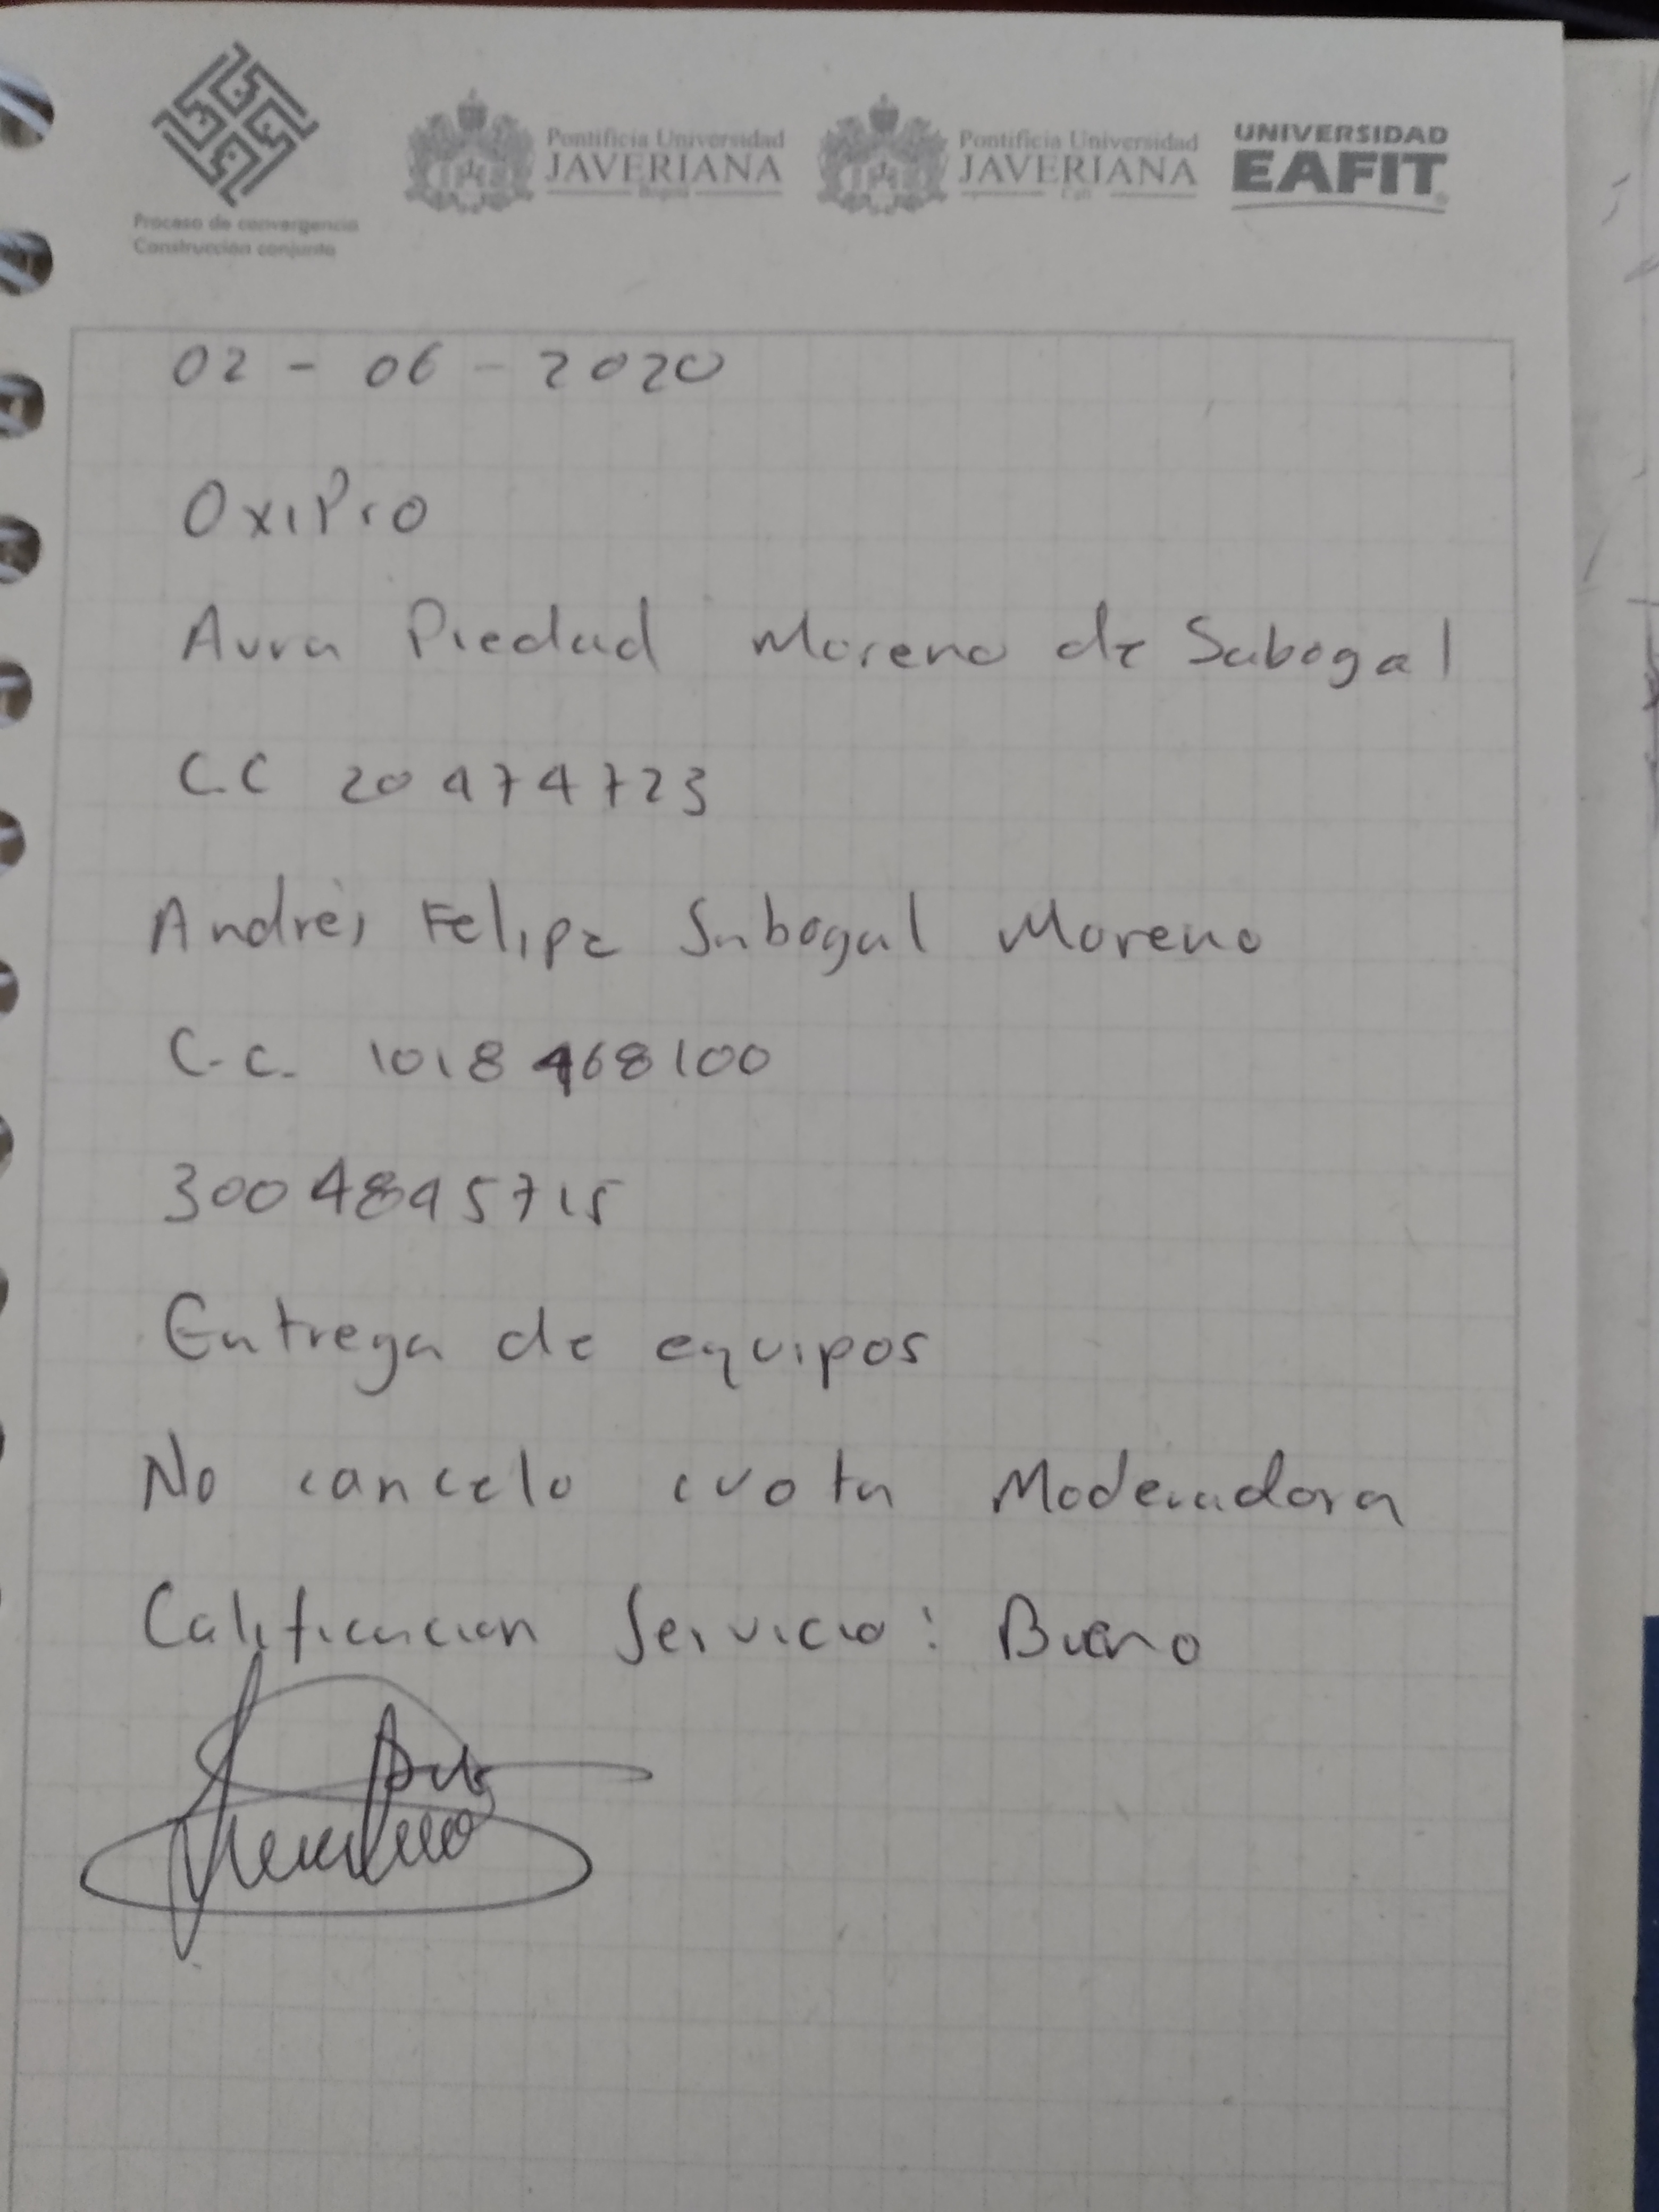 Pontificia Universidad
JAVERIANA
Bogotá
Pontificia Universidad
JAVERIANA
Cali
UNIVERSIDAD
EAFIT
Proceso de convergencia
Construcción conjunta
02 - 06 - 2020
OxiPro
Aura Piedad Moreno de Sabogal
C.C 20474723
Andrés Felipe Sabogal Moreno
C.C. 1018468100
3004895715
Entrega de equipos
No cancelo cuota Moderadora
Calificacion Servicio: Bueno